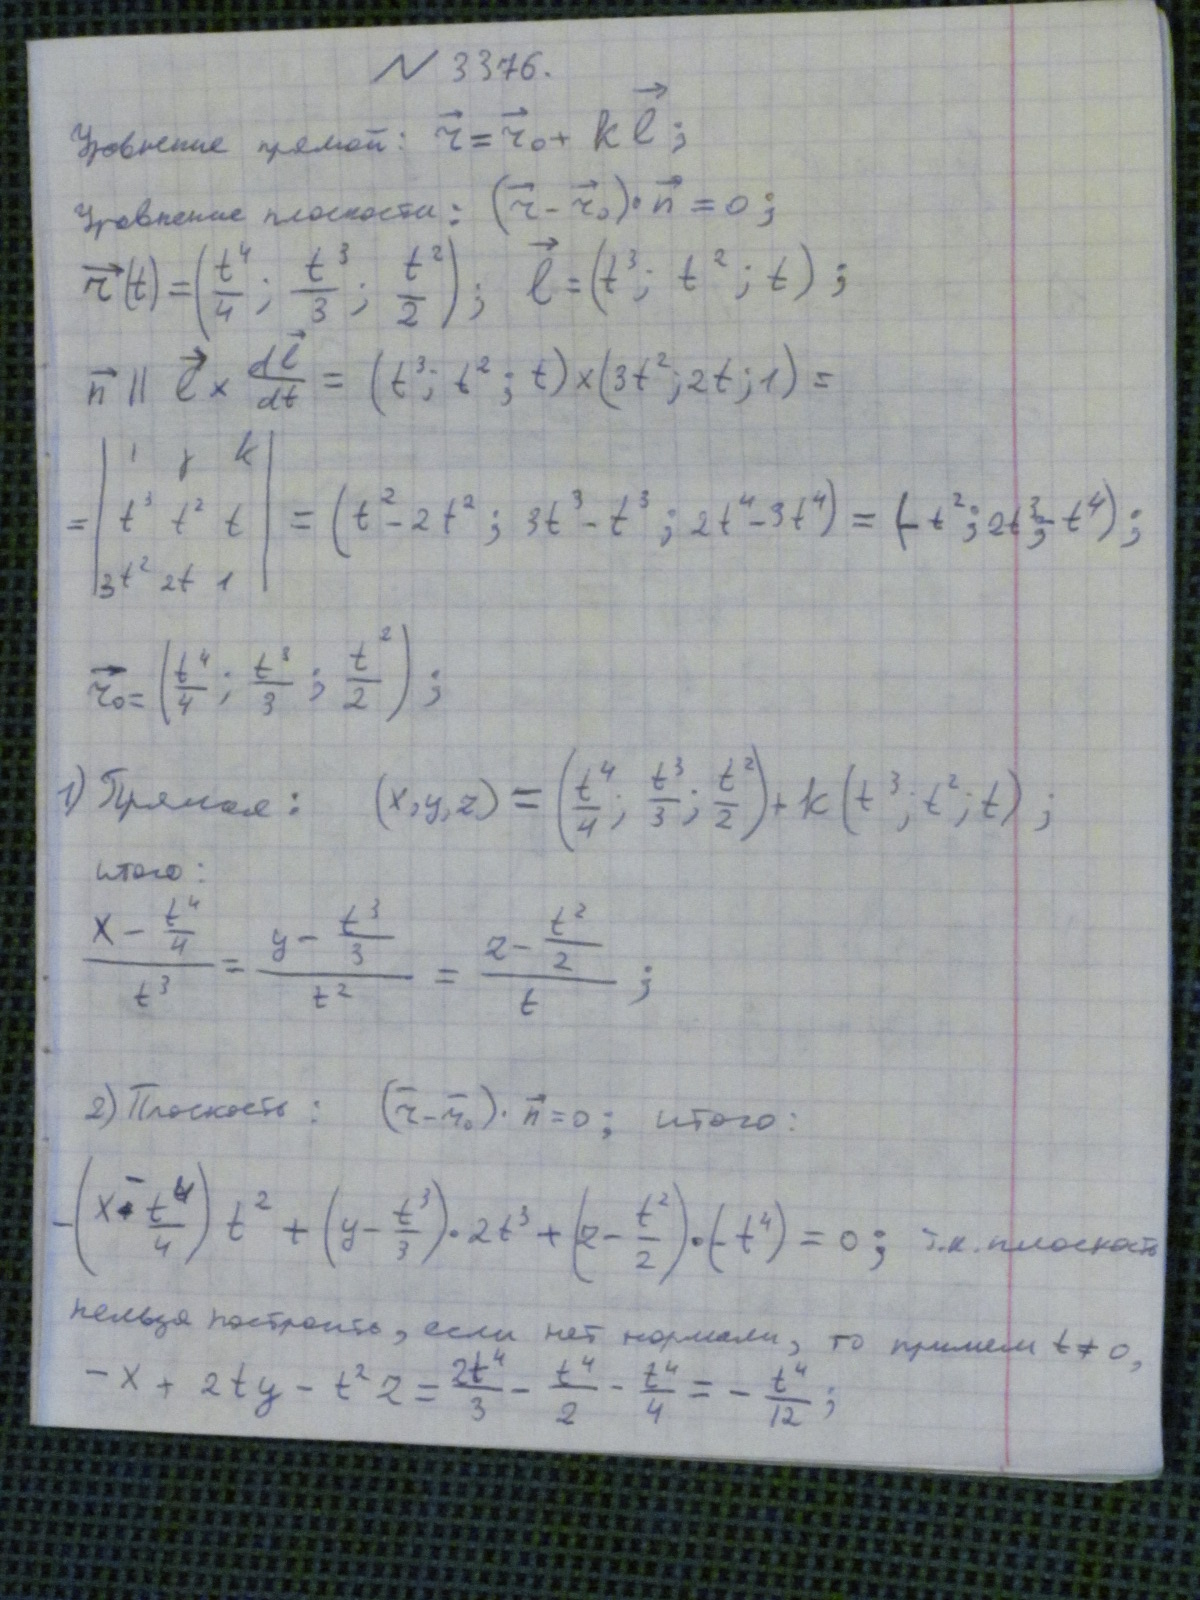 N 3376.
Уравнение прямой: r⃗ = r⃗₀ + k l⃗;
Уравнение плоскости: (r⃗ - r⃗₀)·n⃗ = 0;
r⃗(t) = (t⁴/4; t³/3; t²/2); l⃗ = (t³; t²; t);
n⃗ || l⃗ × dl⃗/dt = (t³; t²; t)×(3t²; 2t; 1) =
= |i j k; t³ t² t; 3t² 2t 1| = (t² - 2t²; 3t³ - t³; 2t⁴ - 3t⁴) = (-t²; 2t³; -t⁴);
r⃗₀ = (t⁴/4; t³/3; t²/2);
1) Прямая: (x, y, z) = (t⁴/4; t³/3; t²/2) + k(t³; t²; t);
итого:
(x - t⁴/4)/t³ = (y - t³/3)/t² = (z - t²/2)/t;
2) Плоскость: (r̅ - r̅₀)·n⃗ = 0; итого:
-(x - t⁴/4) t² + (y - t³/3)·2t³ + (z - t²/2)·(-t⁴) = 0; т.к. плоскость
нельзя построить, если нет нормали, то примем t ≠ 0,
-x + 2ty - t²z = 2t⁴/3 - t⁴/2 - t⁴/4 = -t⁴/12;